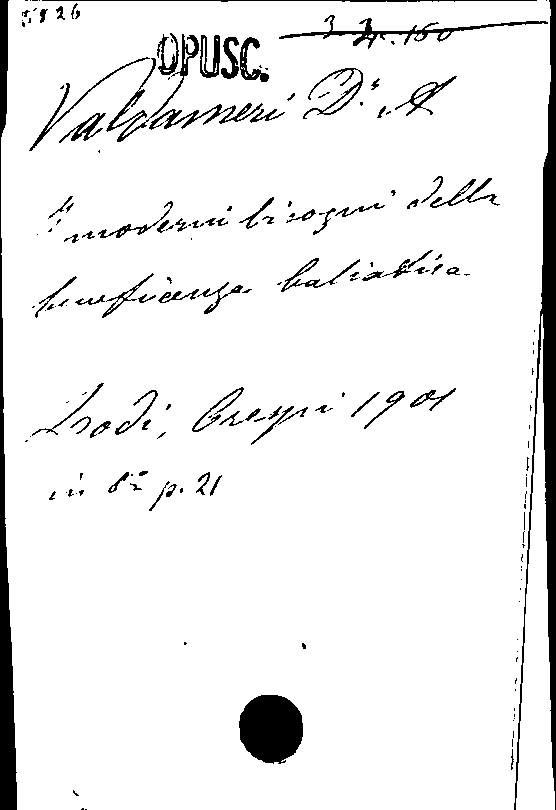 5826
3 3. 4. 150
OPUSC.
Valdameri D.r A
I moderni bisogni della
beneficenza baliatica
Lodi, Crespi 1901
in 8° p. 21